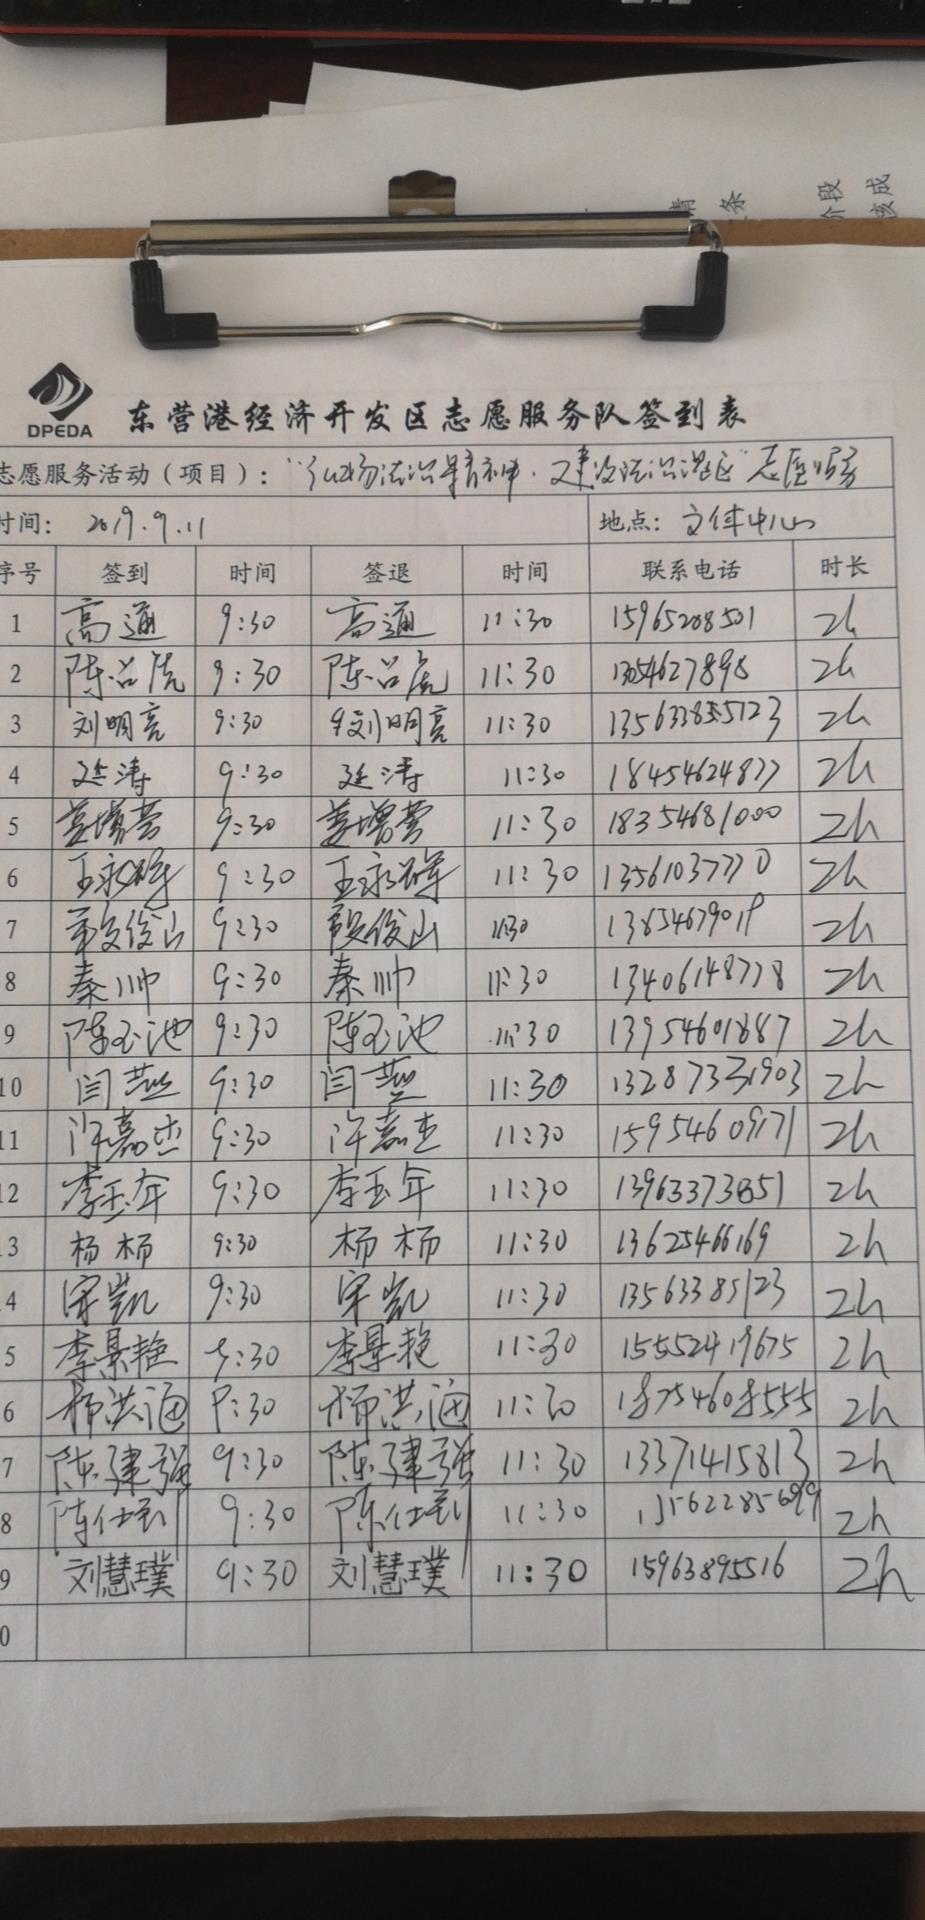 情 条
阶段
该成
DPEDA
东营港经济开发区志愿服务队签到表
志愿服务活动(项目): "弘扬法治精神·建设法治港区"志愿服务
时间: 2019.9.11 地点: 文体中心
序号 签到 时间 签退 时间 联系电话 时长
1 高通 9:30 高通 11:30 15965208501 2h
2 陈吕虎 9:30 陈吕虎 11:30 13054627898 2h
3 刘明亮 9:30 刘明亮 11:30 2h
4 延涛 9:30 延涛 11:30 18454624877 2h
5 姜增营 9:30 姜增营 11:30 18354681000 2h
6 王永 9:30 王永 11:30 13561037770 2h
7 俊山 9:30 段俊山 11:30 13854679019 2h
8 秦帅 9:30 秦帅 11:30 13406148778 2h
9 陈玉池 9:30 陈玉池 11:30 13954601887 2h
10 闫燕 9:30 闫燕 11:30 2h
11 许嘉杰 9:30 许嘉杰 11:30 15954609171 2h
12 李玉年 9:30 李玉年 11:30 13963373851 2h
3 杨杨 9:30 杨杨 11:30 13625466169 2h
4 宋凯 9:30 宋凯 11:30 13563385123 2h
5 李景艳 9:30 李景艳 11:30 15552419675 2h
6 柳洪海 9:30 柳洪海 11:30 18754608555 2h
7 陈建强 9:30 陈建强 11:30 13371415813 2h
8 陈仕 9:30 陈仕 11:30 13562285699 2h
9 刘慧璞 9:30 刘慧璞 11:30 15963895516 2h
0